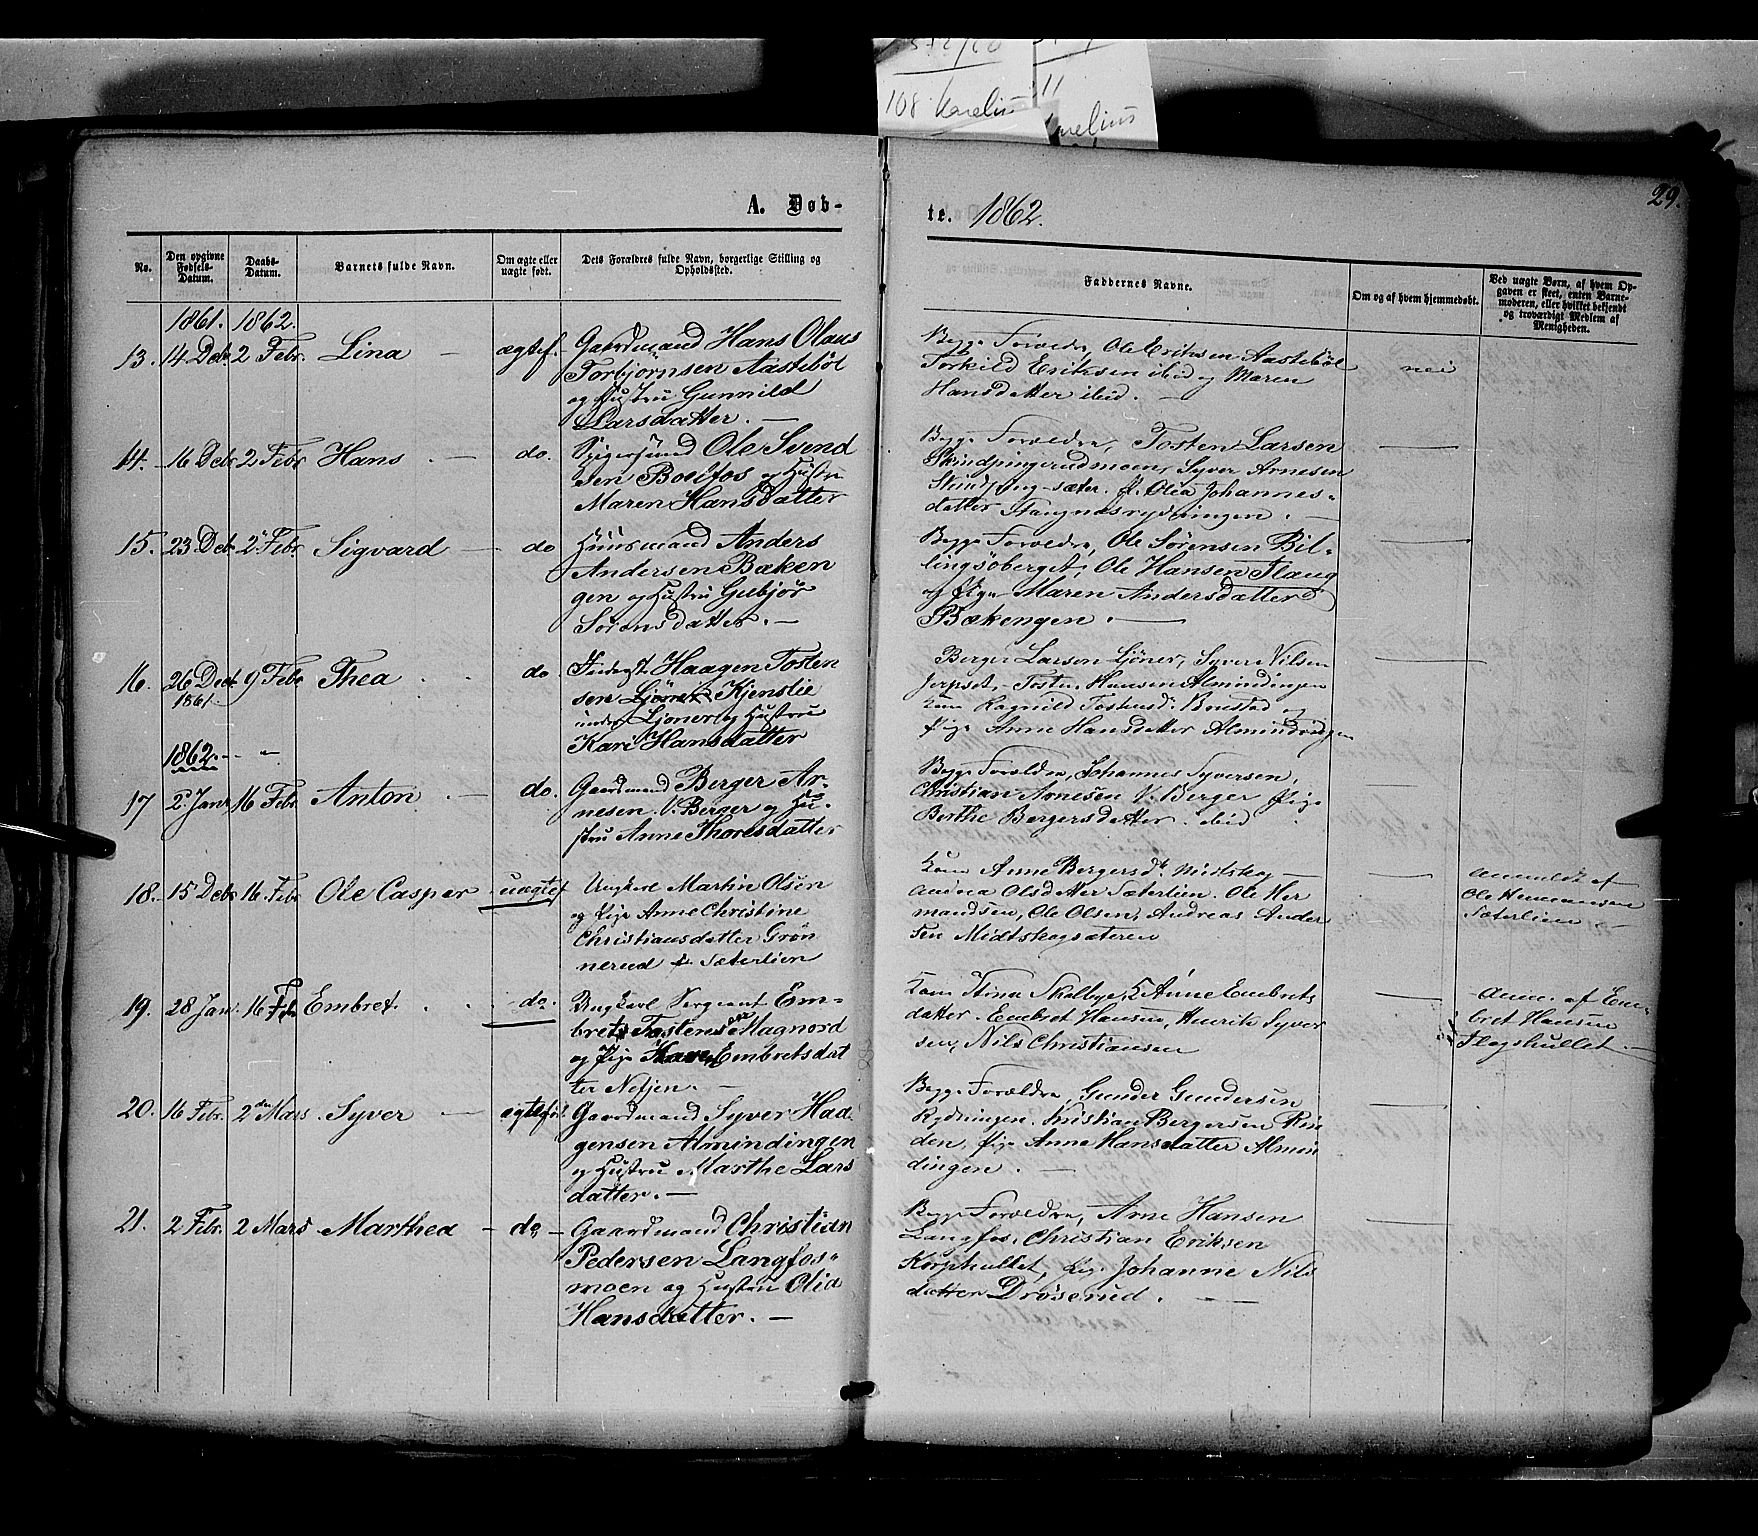 108 Karelius
11
A. Døb-
te. 1862.
29.
No.
Den opgivne Fødsels-Datum.
Daabs-Datum.
Barnets fulde Navn.
Om ægte eller uægte født.
Dets Forældres fulde Navn, borgerlige Stilling og Opholdssted.
Faddernes Navne.
Om og af hvem hjemmedøbt.
Ved uægte Børn, af hvem Opgaven er skeet, enten Barnemoderen, eller hvilket bekjendt og troværdigt Medlem af Menigheden.
1861. 1862.
13. 14 Decbr 2 Febr. Lina — ægtef. Gaardmand Hans Olaus
Torbjørnsen Aastebøl
og Hustru Gunnild
Larsdatter. —
Begge Forældre, Ole Eriksen Aastebøl
Torkild Eriksen ibid og Maren
Hansdatter ibid. —
nei
14. 16 Decbr 2 Febr Hans . — do. Ole Svend
sen Bolfos og Hustru
Maren Hansdatter
Begge Forældre, Tosten Larsen
Skindpingerudmoen, Syver Arnesen
sæter. P. Olea Johannes-
datter
15. 23 Decbr 2 Febr Sigvard — do Huusmand Anders
Andersen Bæken
gen og Hustru Gubjør
Sørensdatter. —
Begge Forældre, Ole Sørensen Bil-
lingsøberget, Ole Hansen Flaug
og Pige Maren Andersdatter
Bækengen. —
16. 26 Decbr 9 Febr Thea . . do Inderst Haagen Tosten
1861.
sen Kjenstie
under Ljøner og Hustru
Kari Hansdatter
Berger Larsen Ljøner, Syver Nilsen
Jerpset, Tosten Hansen Almindingen
Kone Ragnild Tostensd. og
Pige Anne Hansdatter Almindingen
1862.
17 2 Janr 16 Febr Anton . — do. Gaardmand Berger Ar-
nesen V. Berger og Hu-
stru Anne Thoresdatter
Begge Forældre, Johannes Syversen,
Christian Arnesen V. Berger Pige
Berthe Bergersdatter ibid
18. 15 Decbr 16 Febr Ole Casper — uægtef Ungkarl Martin Olsen
og Pige Anne Christine
Christiansdatter Grøn
nerud Sæterlien
Kone Anne Bergersdr Midtskog —
Olsdatter Sæterlien. Ole Her
mandsen, Ole Olsen, Andreas Ander
sen Midtskogsæteren
anmeldt af
Ole Hermansen
Sæterlien
19. 28 Janr 16 Feb Embret. . . do Ungkarl Sergeant Em-
bret Tostensen Magnord
og Pige Embretsdat
ter Nefjen. —
Kone Stina Skalbye, Anne Embrets
datter. Embret Hansen, Henrik Syver
sen, Nils Christiansen
anm. af Em-
bret Hansen
20. 16 Febr. 2den Mars. Syver — ægtefød. Gaardmand Syver Haa
gensen Almindingen
og Hustru Marthe Lars
datter. —
Begge Forældre, Gunder Gundersen
Rydningen. Kristian Bergersen Rin
den, Pige Anne Hansdatter Almin
dingen. —
21. 2 Febr. 2 Mars Marthea — do — Gaardmand Christian
Pedersen Langfos-
moen og Hustru Olia
Hansdatter. —
Begge Forældre, Arne Hansen
Langfos, Christian Eriksen
Korphullet, Pige Johanne Nils
datter Drøserud. —